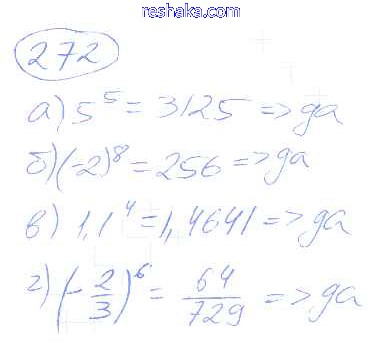 reshaka.com
272
а) 5^5 = 3125 => да
б) (-2)^8 = 256 => да
в) 1,1^4 = 1,4641 => да
г) (-2/3)^6 = 64/729 => да